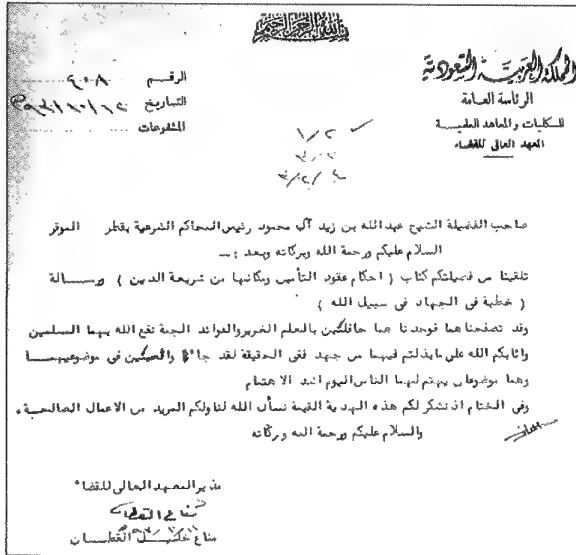 بسم الله الرحمن الرحيم
المملكة العربية السعودية
الرئاسة العامة
للكليات والمعاهد العلمية
المعهد العالى للقضاء
الرقم ٩٠٠٨
التاريخ
المشفوعات
صاحب الفضيلة الشيخ عبد الله بن زيد آل محمود رئيس المحاكم الشرعية بقطر الموقر
السلام عليكم ورحمة الله وبركاته وبعد :ـ
تلقينا من فضيلتكم كتاب ( احكام عقود التأمين ومكانها من شريعة الدين ) ورسـالة
( خطبة فى الجهاد فى سبيل الله )
وقد تصفحناهما فوجدناهما حافلتين بالعلم الغزير والفوائد الجمة نفع الله بهما المسلمين
واثابكم الله على ما بذلتم فيهما من جهد ففى الحقيقة لقد جائا فى موضوعيهما
وهما موضوعان يهتم لهما الناس اليوم اشد الاهتمام
وفى الختام اذ نشكر لكم هذه الهدية القيمة نسأل الله لنا ولكم المزيد من الاعمال الصالحـة ٠
والسلام عليكم ورحمة الله وبركاته
مدير المعهد العالى للقضاء
مناع القطان
مناع خليـل القطـان